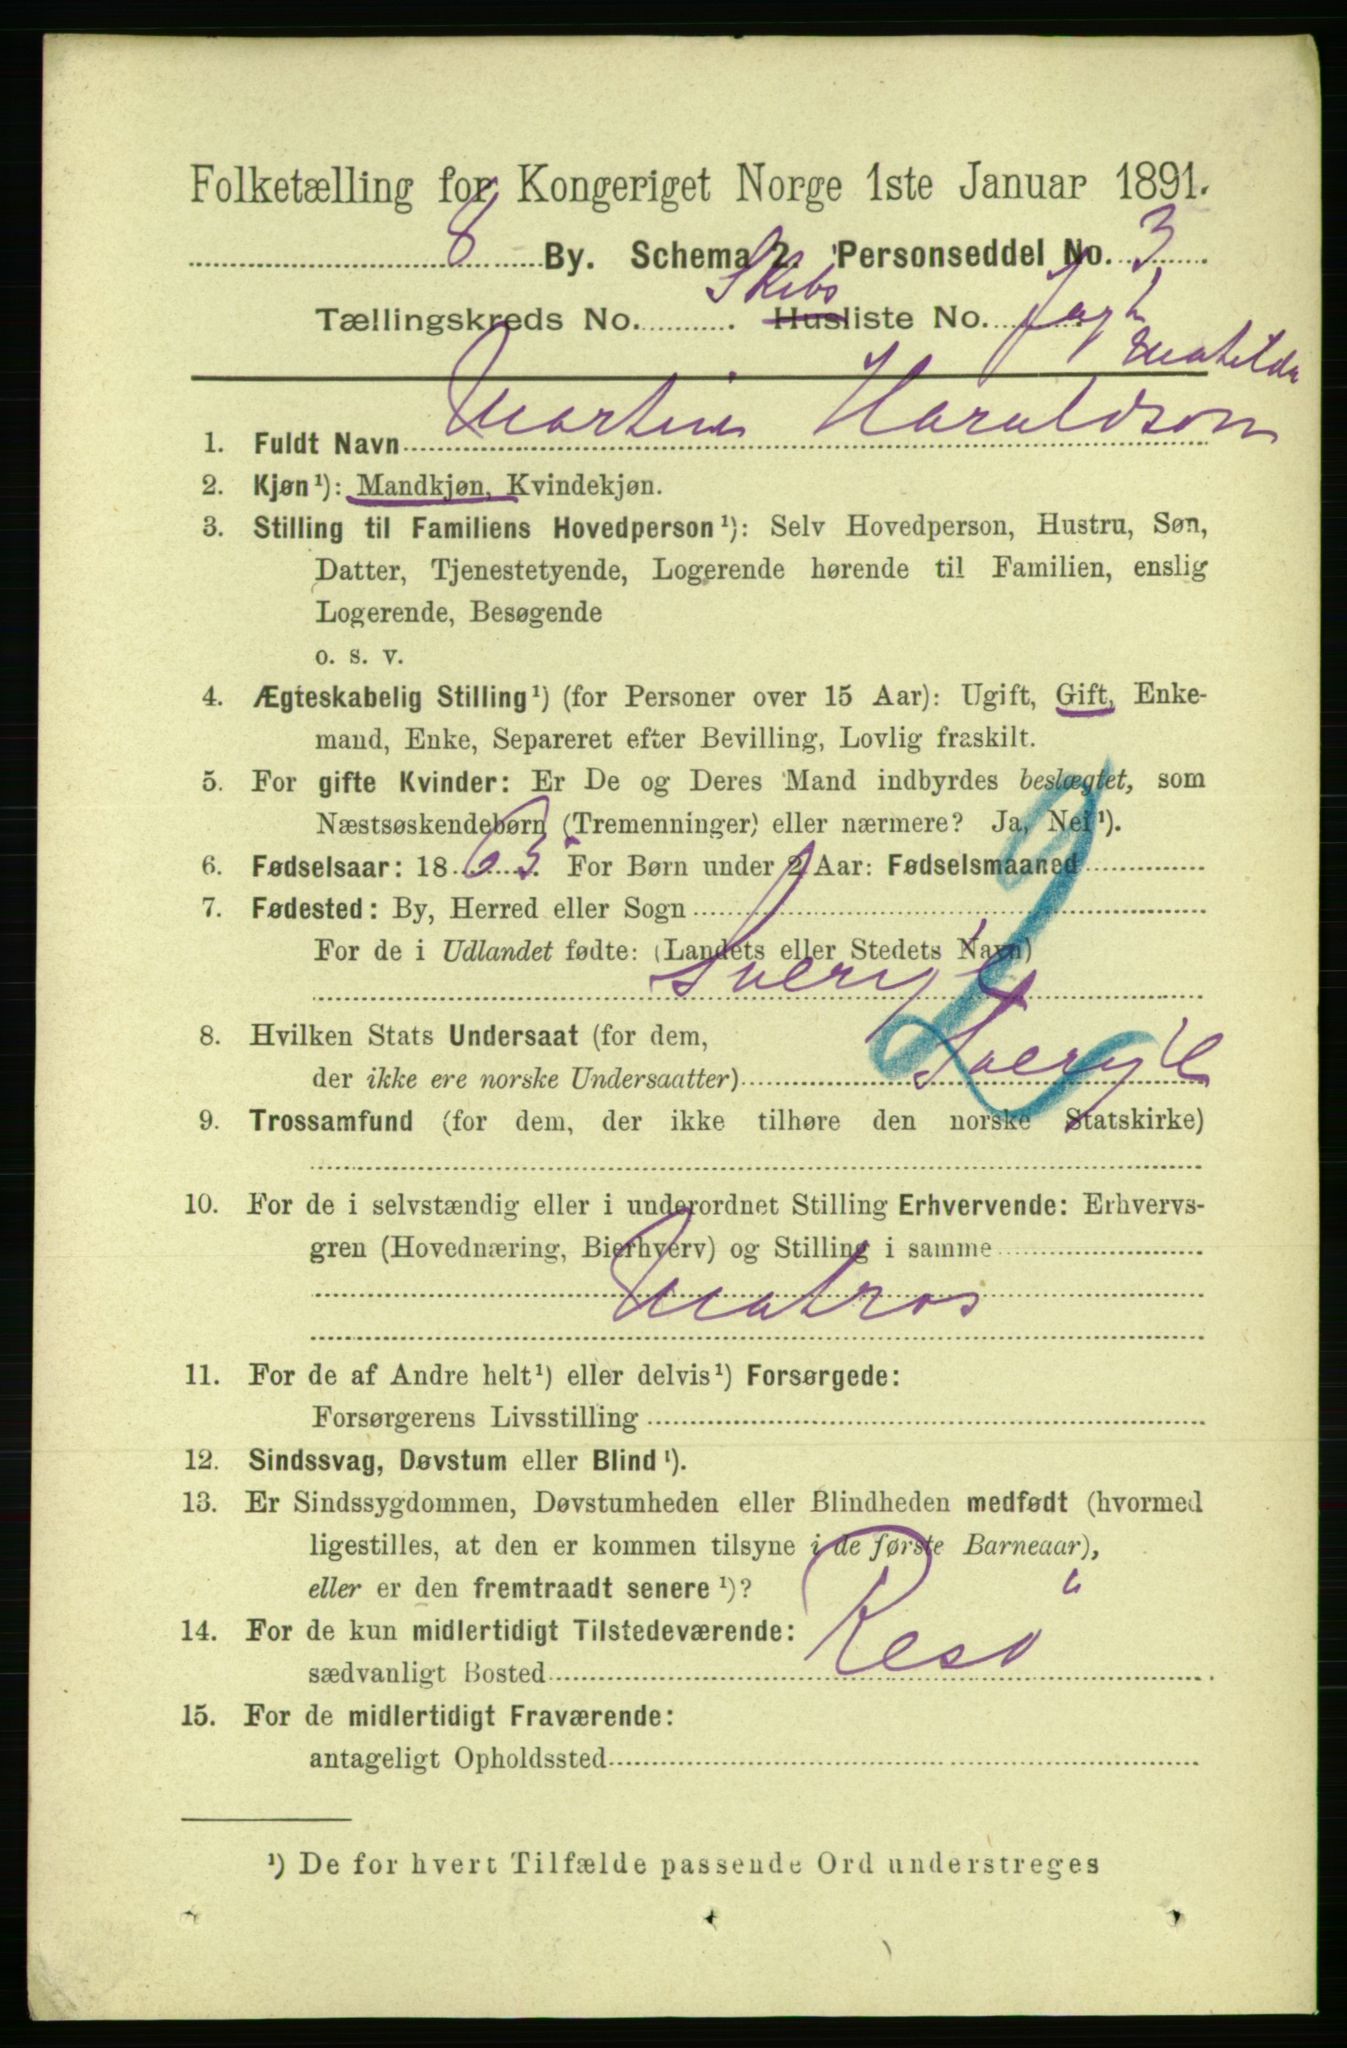 Folketælling for Kongeriget Norge 1ste Januar 1891.
8 By. Schema 2. Personseddel No. 3
Skibs
Tællingskreds No. Husliste No. Jagt
Matilda
1. Fuldt Navn Martin Haraldson
2. Kjøn¹): Mandkjøn, Kvindekjøn.
3. Stilling til Familiens Hovedperson¹): Selv Hovedperson, Hustru, Søn,
Datter, Tjenestetyende, Logerende hørende til Familien, enslig
Logerende, Besøgende
o. s. v.
4. Ægteskabelig Stilling¹) (for Personer over 15 Aar): Ugift, Gift, Enke-
mand, Enke, Separeret efter Bevilling, Lovlig fraskilt.
5. For gifte Kvinder: Er De og Deres Mand indbyrdes beslægtet, som
Næstsøskendebørn (Tremenninger) eller nærmere? Ja, Nei¹).
6. Fødselsaar: 1863. For Børn under 2 Aar: Fødselsmaaned
7. Fødested: By, Herred eller Sogn
For de i Udlandet fødte: (Landets eller Stedets Navn)
Sverige
8. Hvilken Stats Undersaat (for dem,
der ikke ere norske Undersaatter) Sverige
9. Trossamfund (for dem, der ikke tilhøre den norske Statskirke)
10. For de i selvstændig eller i underordnet Stilling Erhvervende: Erhvervs-
gren (Hovednæring, Bierhverv) og Stilling i samme
Matros
11. For de af Andre helt¹) eller delvis¹) Forsørgede:
Forsørgerens Livsstilling
12. Sindssvag, Døvstum eller Blind¹).
13. Er Sindssygdommen, Døvstumheden eller Blindheden medfødt (hvormed
ligestilles, at den er kommen tilsyne i de første Barneaar),
eller er den fremtraadt senere¹)?
14. For de kun midlertidigt Tilstedeværende:
sædvanligt Bosted Resö
15. For de midlertidigt Fraværende:
antageligt Opholdssted
¹) De for hvert Tilfælde passende Ord understreges